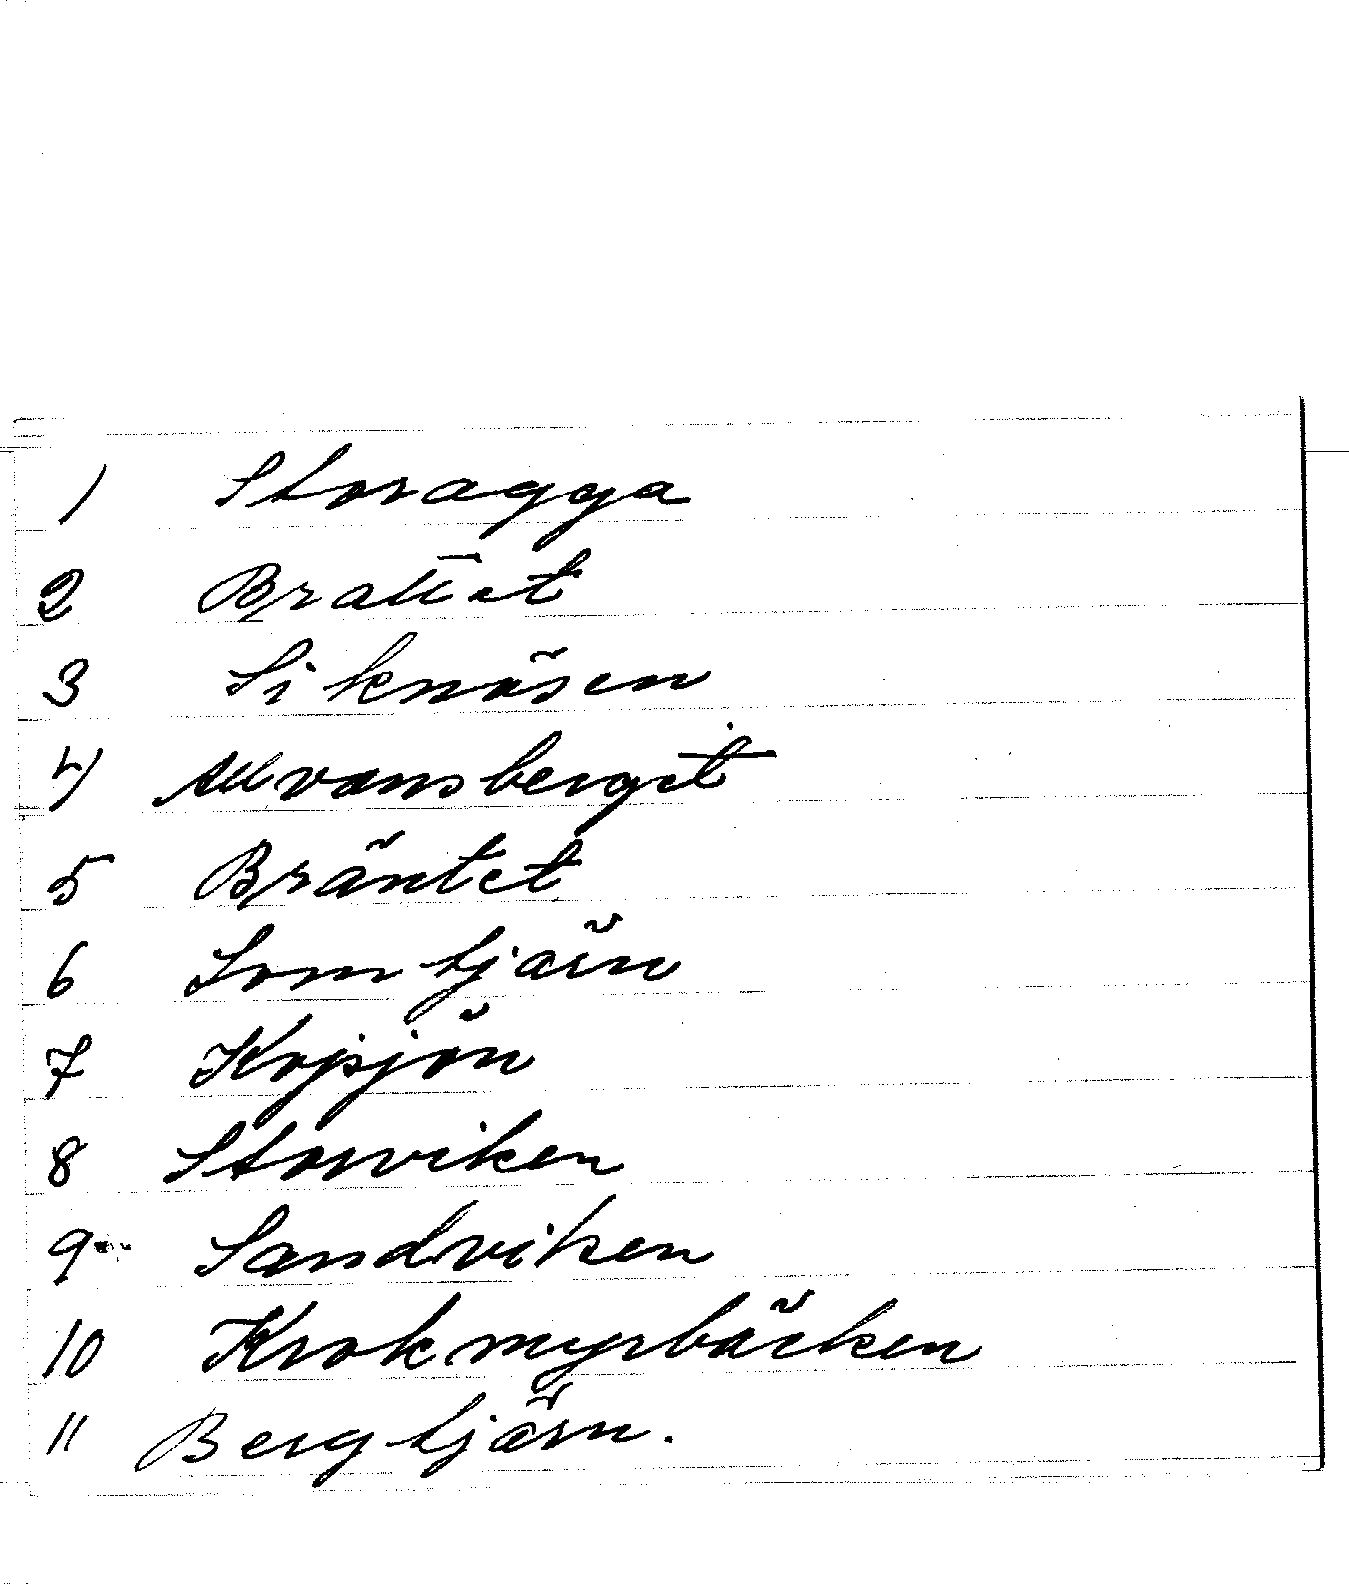 1 Storagga
2 Brattet
3 Siknäsen
4
5 Bräntet
6 Lomtjärn
7 Kopsjön
8 Storviken
9 Sandviken
10 Krokmyrbäcken
11 Bergtjärn.